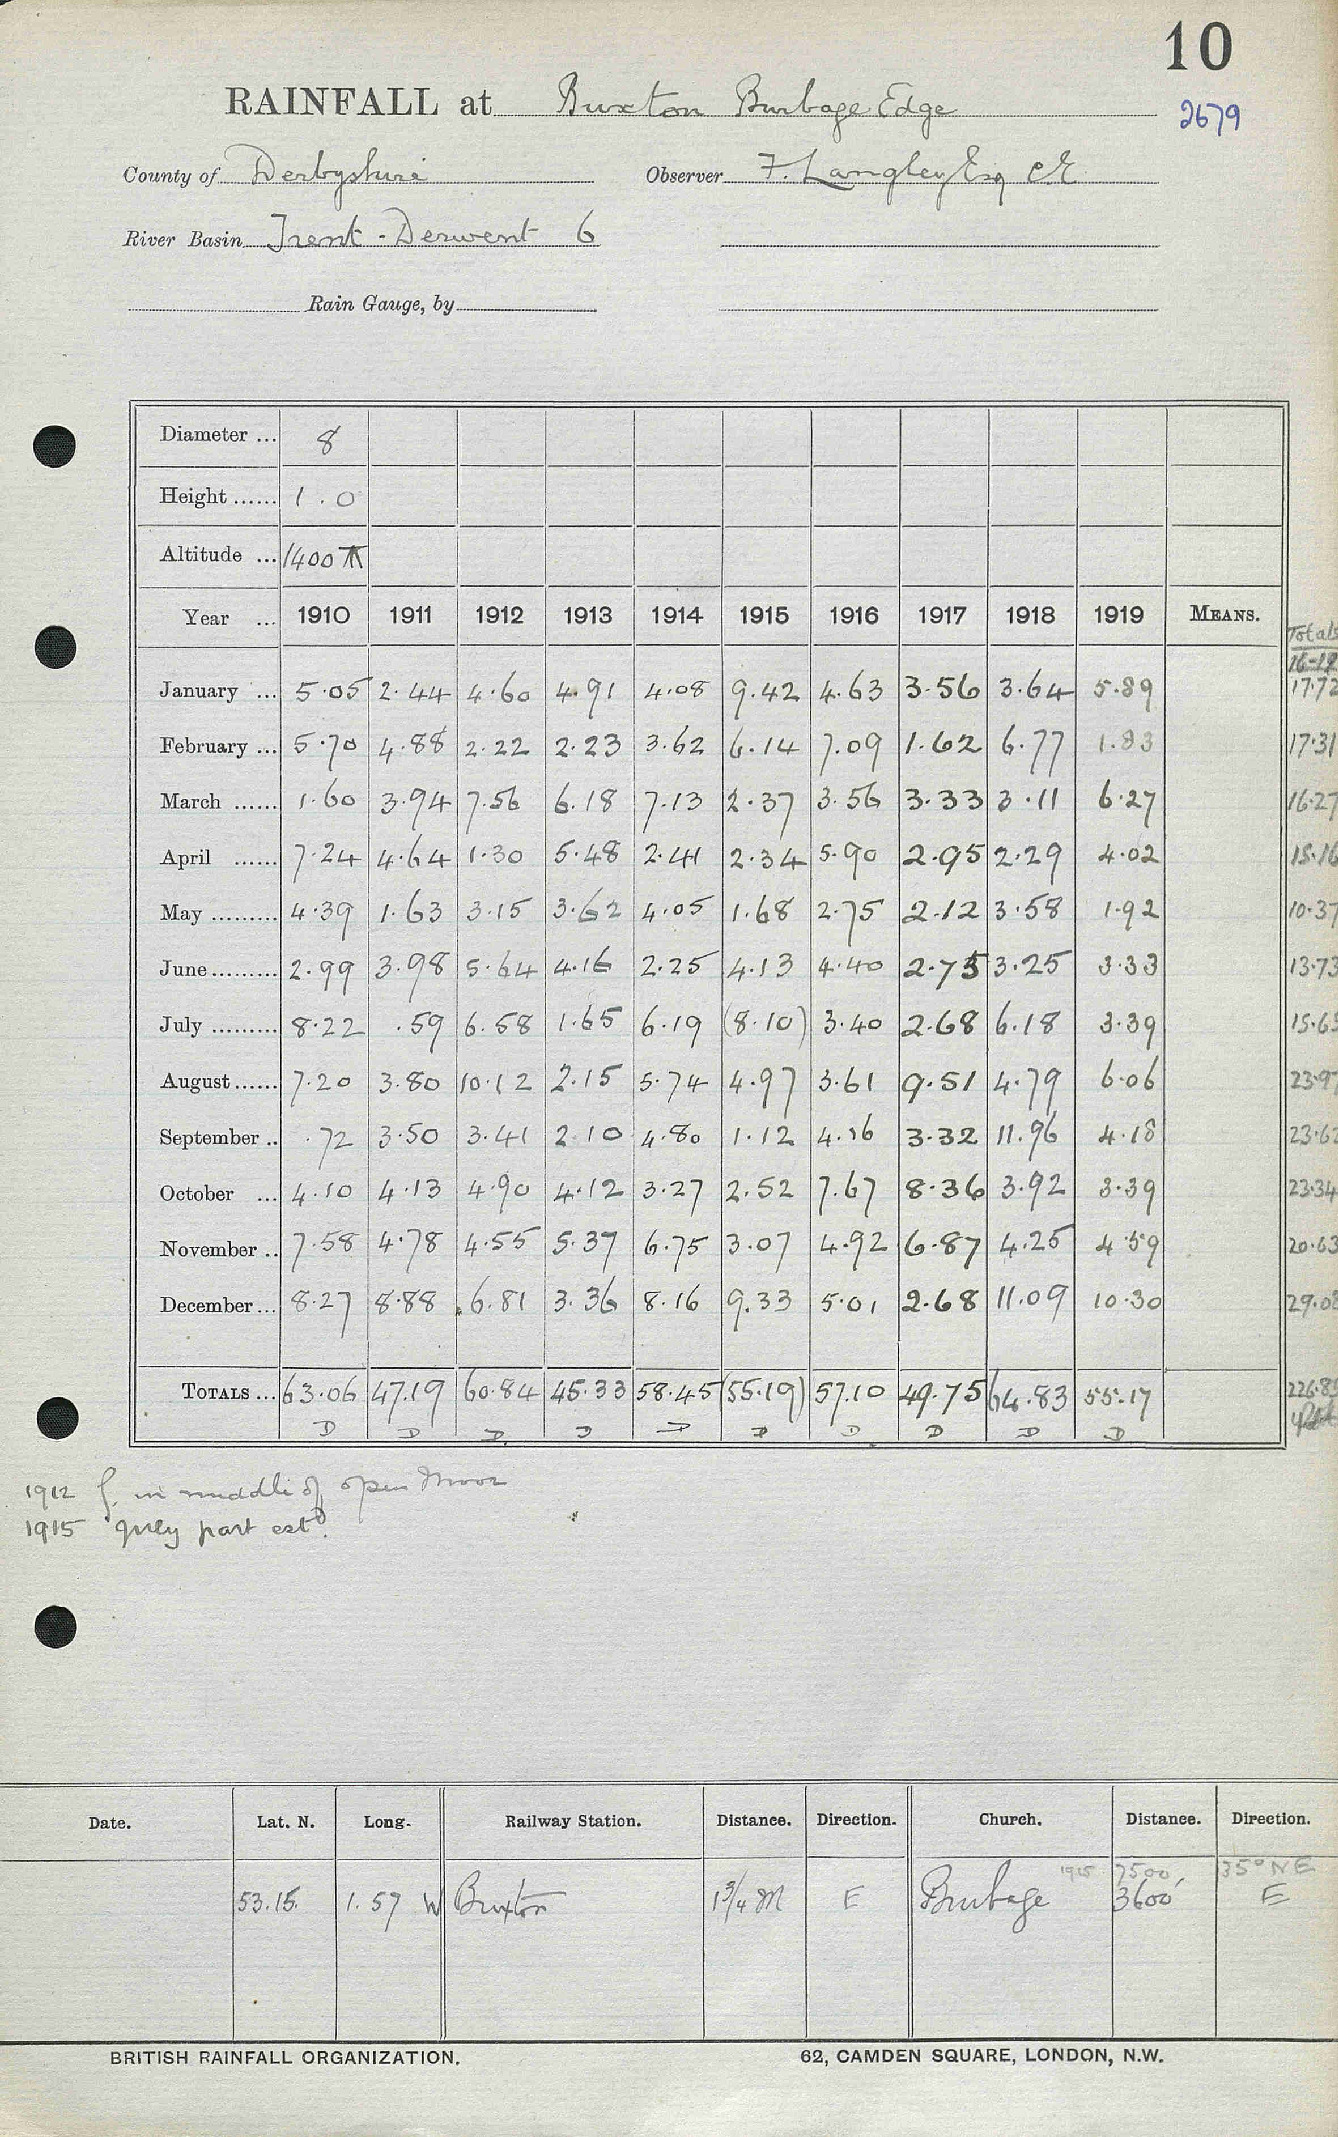 10
RAINFALL at Buxton Burbage Edge
2679
County of Derbyshire Observer F. Langley Esq C.E.
River Basin Trent - Derwent 6
Rain Gauge, by
Diameter ... 8
Height ...... 1.0
Altitude ... 1400
Year ... 1910 1911 1912 1913 1914 1915 1916 1917 1918 1919 MEANS. Totals
16-19
January ... 5.05 2.44 4.60 4.91 4.08 9.42 4.63 3.56 3.64 5.89 17.72
February ... 5.70 4.88 2.22 2.23 3.62 6.14 7.09 1.62 6.77 1.83 17.31
March ...... 1.60 3.94 7.56 6.18 7.13 2.37 3.56 3.33 3.11 6.27 16.27
April ...... 7.24 4.64 1.30 5.48 2.41 2.34 5.90 2.95 2.29 4.02 15.16
May ......... 4.39 1.63 3.15 3.62 4.05 1.68 2.75 2.12 3.58 1.92 10.37
June ......... 2.99 3.98 5.64 4.16 2.25 4.13 4.40 2.75 3.25 3.33 13.73
July ......... 8.22 .59 6.58 1.65 6.19 (8.10) 3.40 2.68 6.18 3.39 15.65
August ...... 7.20 3.80 10.12 2.15 5.74 4.97 3.61 9.51 4.79 6.06 23.97
September .. .72 3.50 3.41 2.10 4.80 1.12 4.16 3.32 11.96 4.18 23.62
October ... 4.10 4.13 4.90 4.12 3.27 2.52 7.67 8.36 3.92 3.39 23.34
November .. 7.58 4.78 4.55 5.37 6.75 3.07 4.92 6.87 4.25 4.59 20.63
December ... 8.27 8.88 6.81 3.36 8.16 9.33 5.01 2.68 11.09 10.30 29.08
TOTALS ... 63.06 47.19 60.84 45.33 58.45 (55.19) 57.10 49.75 64.83 55.17 226.85
D D D D D D D D D D
1912 g. in middle of open Moor
1915 July part estd.
Date. Lat. N. Long. Railway Station. Distance. Direction. Church. Distance. Direction.
1915 7500' 35° NE
53.15. 1.57 W Buxton 1 3/4 M E Burbage 3600' E
BRITISH RAINFALL ORGANIZATION. 62, CAMDEN SQUARE, LONDON, N.W.